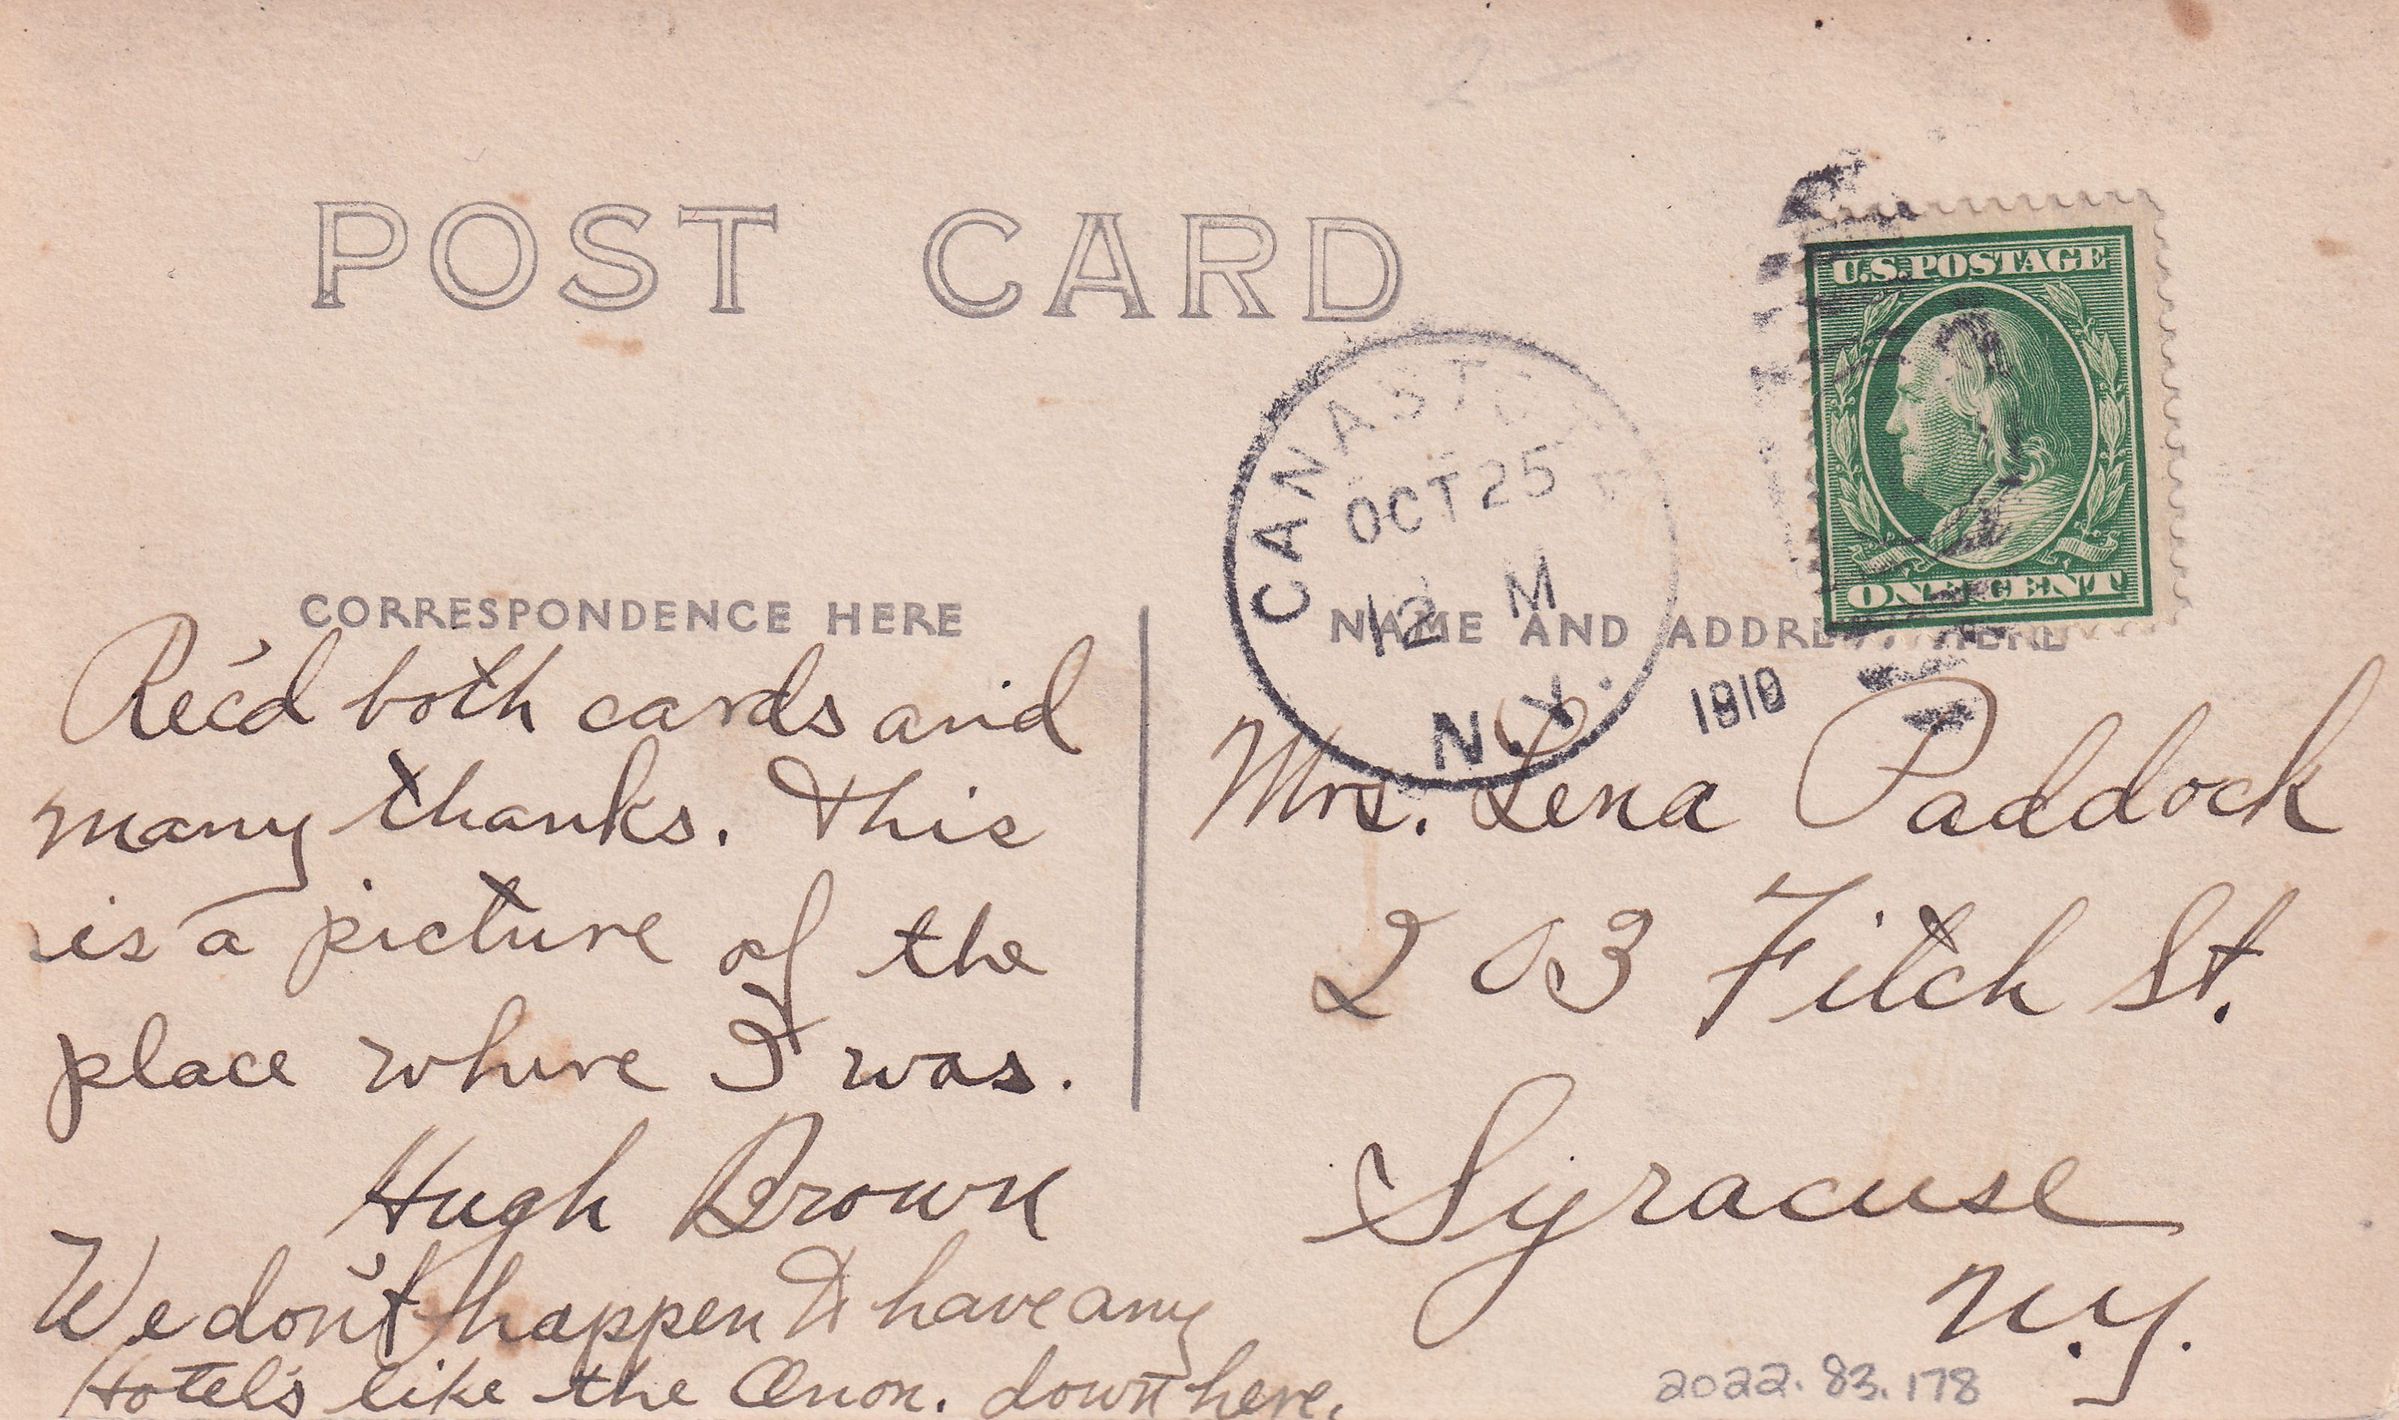 POST CARD
U.S. POSTAGE
ONE CENT
CANASTOTA
OCT 25
12 M
N.Y.
1910
CORRESPONDENCE HERE
NAME AND ADDRESS HERE
Rec'd both cards and
many thanks. This
is a picture of the
place where I was.
Hugh Brown
We don't happen to have any
Hotels like the Onon. down here.
Mrs. Lena Paddock
203 Fitch St.
Syracuse
N.Y.
2022.83.178